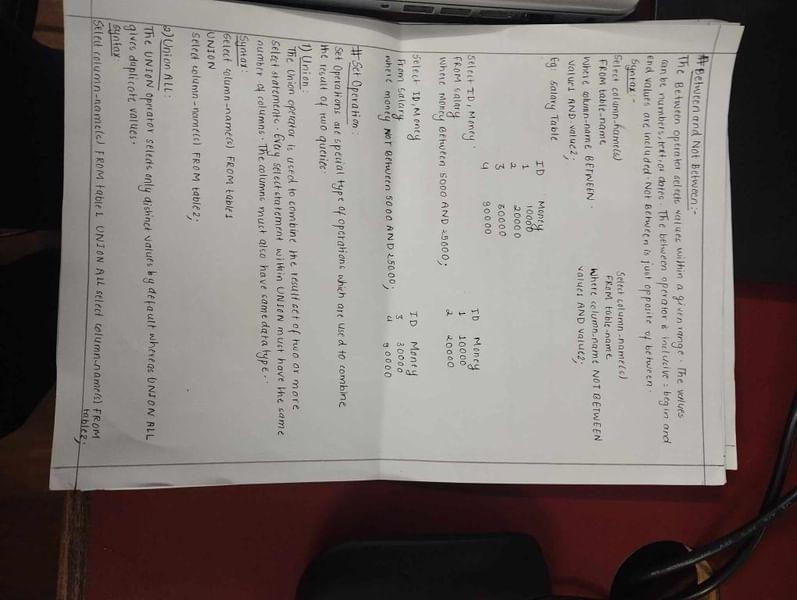 # Between and Not Between:-
The Between operator selects values within a given range. The values
can be numbers, text, or dates. The between operator is inclusive: begin and
end values are included. Not Between is just opposite of between.
Syntax:-
Select column-name(s)
FROM table-name
Where column-name BETWEEN
value1 AND value2;
Select column-name(s)
FROM table-name
Where column-name NOT BETWEEN
value1 AND value2;
Eg: Salary Table
ID Money
1 10000
2 20000
3 30000
4 90000
Select ID, Money
FROM salary
Where money Between 5000 AND 25000;
ID Money
1 10000
2 20000
Select ID, Money
From salary
where money NOT Between 5000 AND 25000;
ID Money
3 30000
4 90000
# Set Operation:
Set Operations are special type of operations which are used to combine
the result of two queries.
1) Union:
The Union operator is used to combine the result set of two or more
Select statements. Every select statement within UNION must have the same
number of columns. The columns must also have same data type.
Syntax:
Select column-name(s) FROM table1
UNION
Select column-name(s) FROM table2;
2) Union ALL:
The UNION operator selects only distinct values by default whereas UNION ALL
gives duplicate values.
Syntax:
Select column-name(s) FROM table1 UNION ALL select column-name(s) FROM
table2;